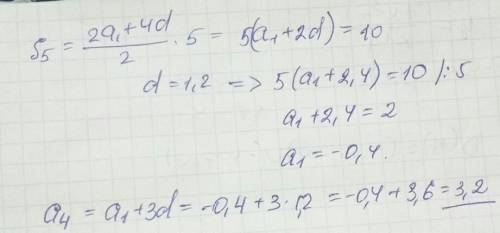 S₅ = (2a₁+4d)/2 · 5 = 5(a₁+2d) = 10
d = 1,2 => 5(a₁+2,4) = 10 /:5
a₁+2,4 = 2
a₁ = -0,4.
a₄ = a₁+3d = -0,4+3·1,2 = -0,4+3,6 = 3,2